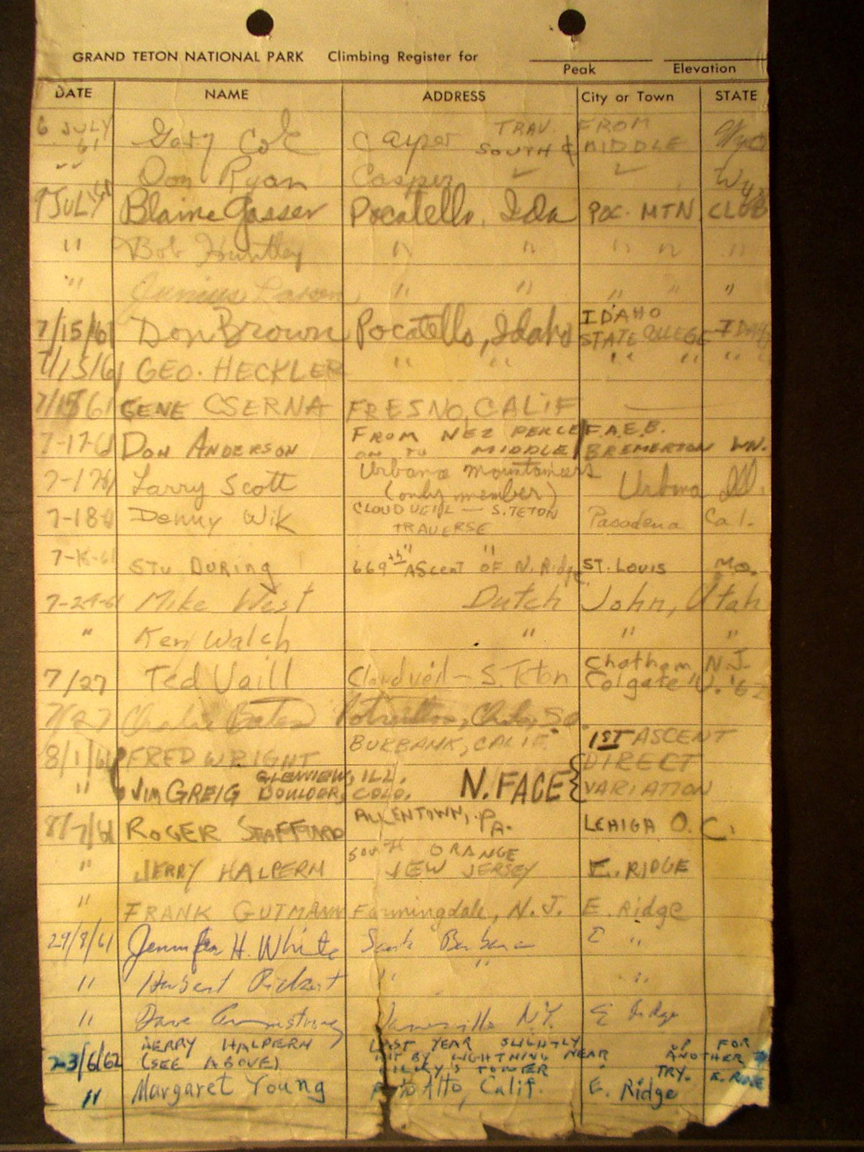 GRAND TETON NATIONAL PARK Climbing Register for
Peak Elevation
DATE NAME ADDRESS City or Town STATE
6 JULY 61 Gary Cole Casper TRAV. SOUTH & FROM MIDDLE Wyo
" " Don Ryan Casper ✓ ✓ Wyo
9 JULY 61 Blaine Gasser Pocatello, Ida POC. MTN CLUB
" Bob Huntley " " " " "
" Junius Larsen, " " " " "
7/15/61 Don Brown Pocatello, Idaho IDAHO STATE COLLEGE IDAHO
7/15/61 GEO. HECKLER " " " " " "
7/15/61 GENE CSERNA FRESNO, CALIF
7-17-61 DON ANDERSON FROM NEZ PERCE ON TO MIDDLE F.A.E.B. BREMERTON WN.
7-17-61 Larry Scott Urbana Mountaineers (only member) Urbana Ill.
7-18-61 Denny Wik CLOUDVEIL — S. TETON TRAVERSE Pasadena Cal.
STU DURING 669th ASCENT OF N. Ridge ST. LOUIS Mo.
7-29-61 Mike West Dutch John, Utah
" Ken Walch " " "
7/27 Ted Vaill Cloudveil — S. Teton Chatham N.J. Colgate U. '62
7/27 Charlie Bates
8/1/61 FRED WRIGHT BURBANK, CALIF. 1ST ASCENT
" JIM GREIG GLENVIEW, ILL. BOULDER, COLO. N. FACE { DIRECT VARIATION
8/7/61 ROGER STAFFORD ALLENTOWN, PA. LEHIGH O.C.
" JERRY HALPERN SOUTH ORANGE NEW JERSEY E. RIDGE
" FRANK GUTMANN Farmingdale, N.J. E. Ridge
29/8/61 Jennifer H. White Santa Barbara E "
" Herbert Rickert " " "
" Dave Armstrong Dansville N.Y. E Ridge
23/6/62 JERRY HALPERN (SEE ABOVE) LAST YEAR SLIGHTLY HIT BY LIGHTNING NEAR TOWER UP FOR ANOTHER TRY. E. RIDGE
" Margaret Young Palo Alto, Calif. E. Ridge